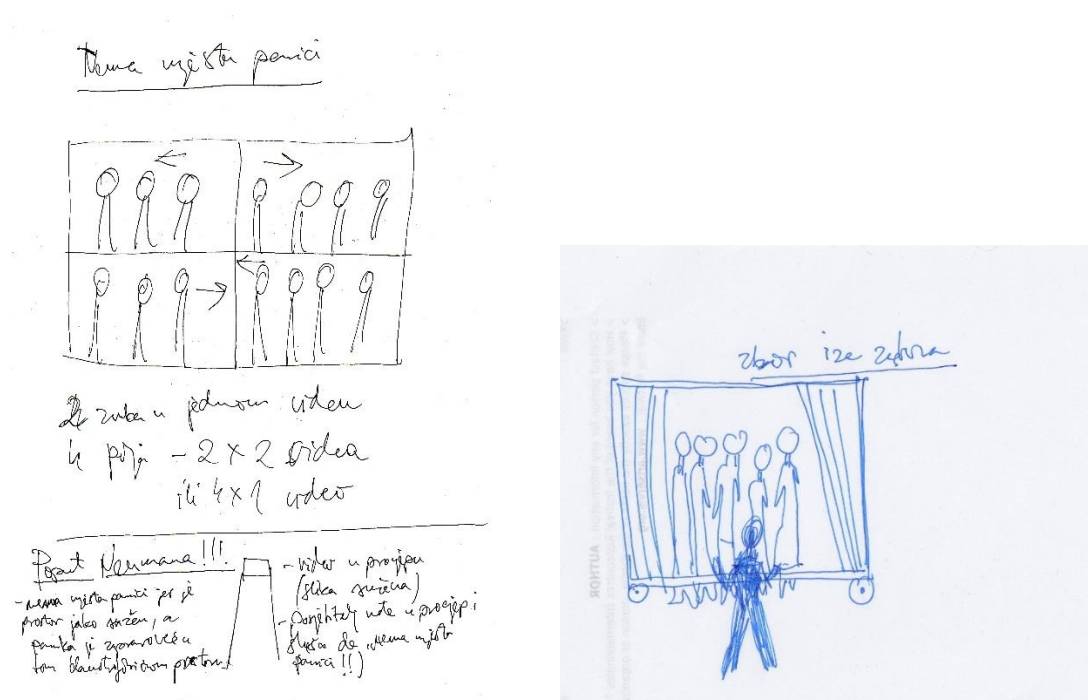 Nema mjesta panici
zuba u jednom videu
4 polja - 2 x 2 videa
ili 4 x 1 video
Poput Neumana!!!
- nema mjesta panici jer je
prostor jako sužen, a
panika je u
tom klaustrofobičnom prostoru
- video u procjepu
(slika sužena)
- posjetitelj uđe u procjep i
sluša da "nema mjesta
panici!!)
zbor iza zastora
AUTHOR